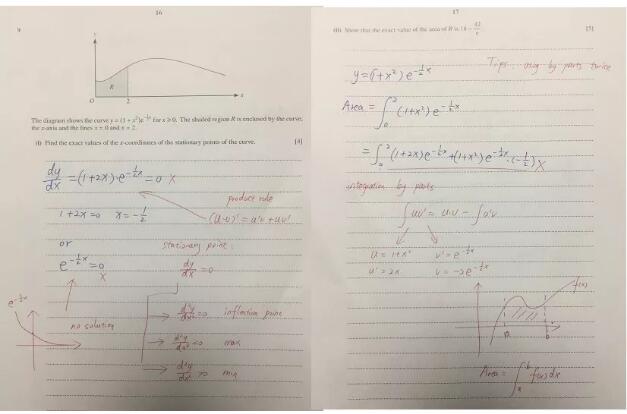 16
9
y
R
O
2
x
The diagram shows the curve y = (1 + x²)e^{-½x} for x ≥ 0. The shaded region R is enclosed by the curve,
the x-axis and the lines x = 0 and x = 2.
(i) Find the exact values of the x-coordinates of the stationary points of the curve. [4]
dy/dx = (1+2x)·e^{-½x} = 0 X
product rule
1+2x=0 x=-½
(u·v)' = u'v + uv'
or
stationary point:
e^{-½x} = 0
X
dy/dx = 0
e^{-½x}
no solution
→ d²y/dx² = 0 inflection point
→ d²y/dx² <0 max
→ d²y/dx² >0 min
17
(ii) Show that the exact value of the area of R is 18 − 42/e. [5]
Tips: using by parts twice
y=(1+x²)e^{-½x}
Area = ∫₀² (1+x²)e^{-½x}
= ∫₀² (1+2x)e^{-½x}+(1+x²)e^{-½x}·(-½) X
integration by parts
∫uv' = uv - ∫u'v
u = 1+x² v' = e^{-½x}
u' = 2x v = -2e^{-½x}
f(x)
a
b
Area = ∫ₐᵇ f(x)dx